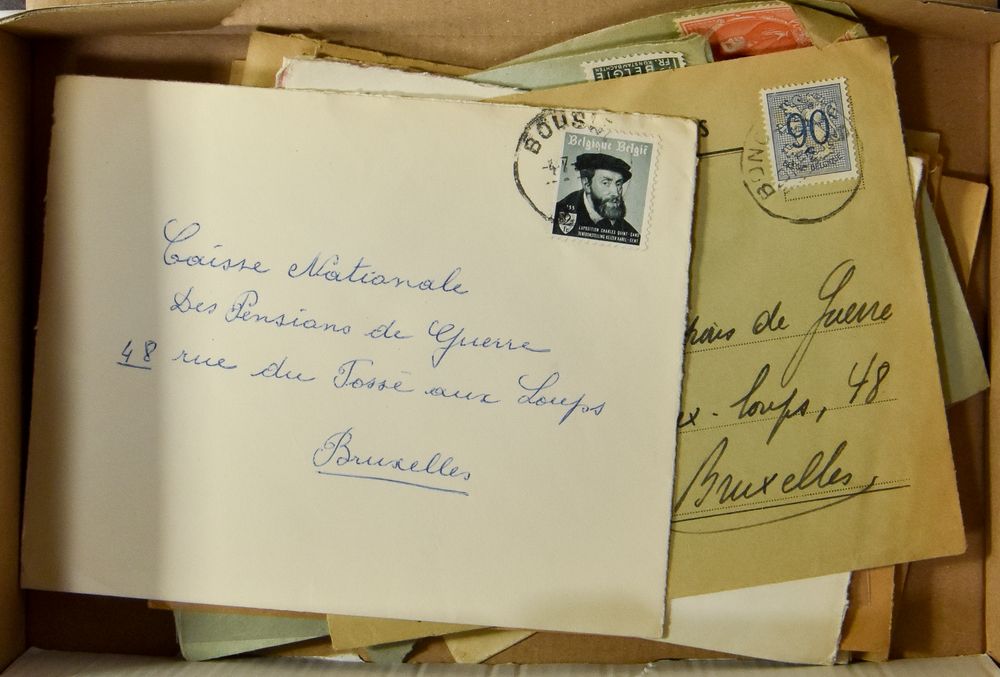 BOUS
-4.7
Belgique België
'55
EXPOSITION CHARLES QUINT-GAND
TENTOONSTELLING KEIZER KAREL-GENT
Caisse Nationale
Des Pensions de Guerre
48 rue du Fossé aux Loups
Bruxelles
BELGIE
FR. KUNSTAMBACHTEN
90
BONC
de Guerre
loups, 48
Bruxelles